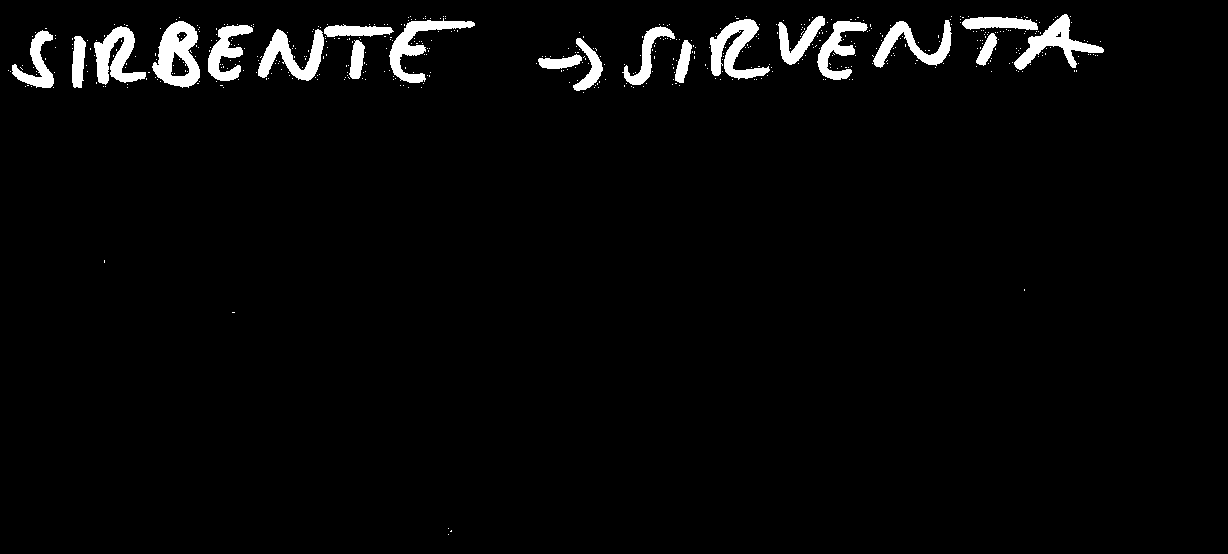 SIRBENTE → SIRVENTA